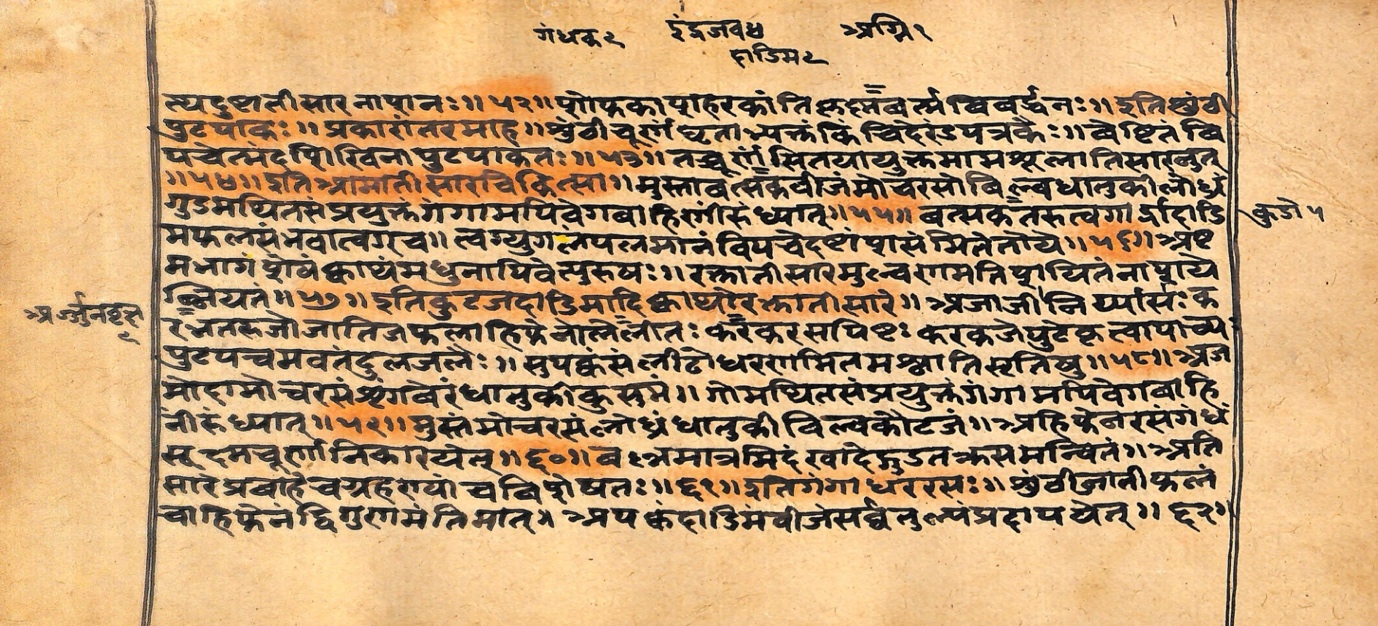 गंधक २ इंद्रजव ४ अग्नि १
दाडिम २
त्यदुष्टातीसारनाशनः॥५२॥शोफकाशहरकांतिकृद्दीर्घवर्त्मविवर्द्धनः॥इतिशुंठी
पुटपाकः॥प्रकारांतरमाह॥शुंठीचूर्णंघृताभ्यक्तंकिंचिदेरंडपत्रकैः॥वेष्टितंवि
पचेत्मंदशिखिनापुटपाकतः॥५३॥तच्चूर्णंसितयायुक्तमामशूलातिसारनुत्
॥५४॥इतिआमातीसारचिकित्सा॥मुस्तावत्संकवीजंमोचरसोविल्वधातुकीलोध्रं
गुडमथितसंप्रयुक्तंगंगामपिवेगवाहिणींरुंध्यात्॥५५॥वत्सकतरुत्वगार्द्रादाडि
मफलसंभवात्वग्च॥त्वग्युगलंपलमानंविपचेदष्टांशसंमितेतोये॥५६॥अष्ट
मभागशेषंक्वाथंमधुनापिवेत्पुरुषः॥रक्तातीसारमुल्वणमतिशयितंनाशये
न्नियतं॥५७॥इतिकुटजदाडिमादिक्वाथोरक्तातीसारे॥अजाजीनिर्य्यासः
पुटपच्चमवतंदुलजलैः॥सुपक्वंसंलीढोधरणमितमश्नातिसृतिषु॥५८॥अज
मोदामोचरसंशृंगवेरंधातुकीकुसुमं॥गोमथितसंप्रयुक्तंगंगामपिवेगवाहि
नींरुंध्यात्॥५९॥मुस्तंमोचरसंलोध्रंधातुकीविल्वकौटजं॥अहिफेनंरसंगंधं
सूक्ष्मचूर्णानिकारयेत्॥६०॥वल्लमात्रमिदंखादेद्गुडतक्रसमन्वितं॥अति
सारेप्रवाहेचग्रहण्यांचविशेषतः॥६१॥इतिगंगाधररसः॥शुंठीजातीफलं
चाहिफेनंद्विगुणमंतिमात्। अपक्वंदाडिमंवीजंसर्वंतुल्यंप्रदापयेत्॥६२॥